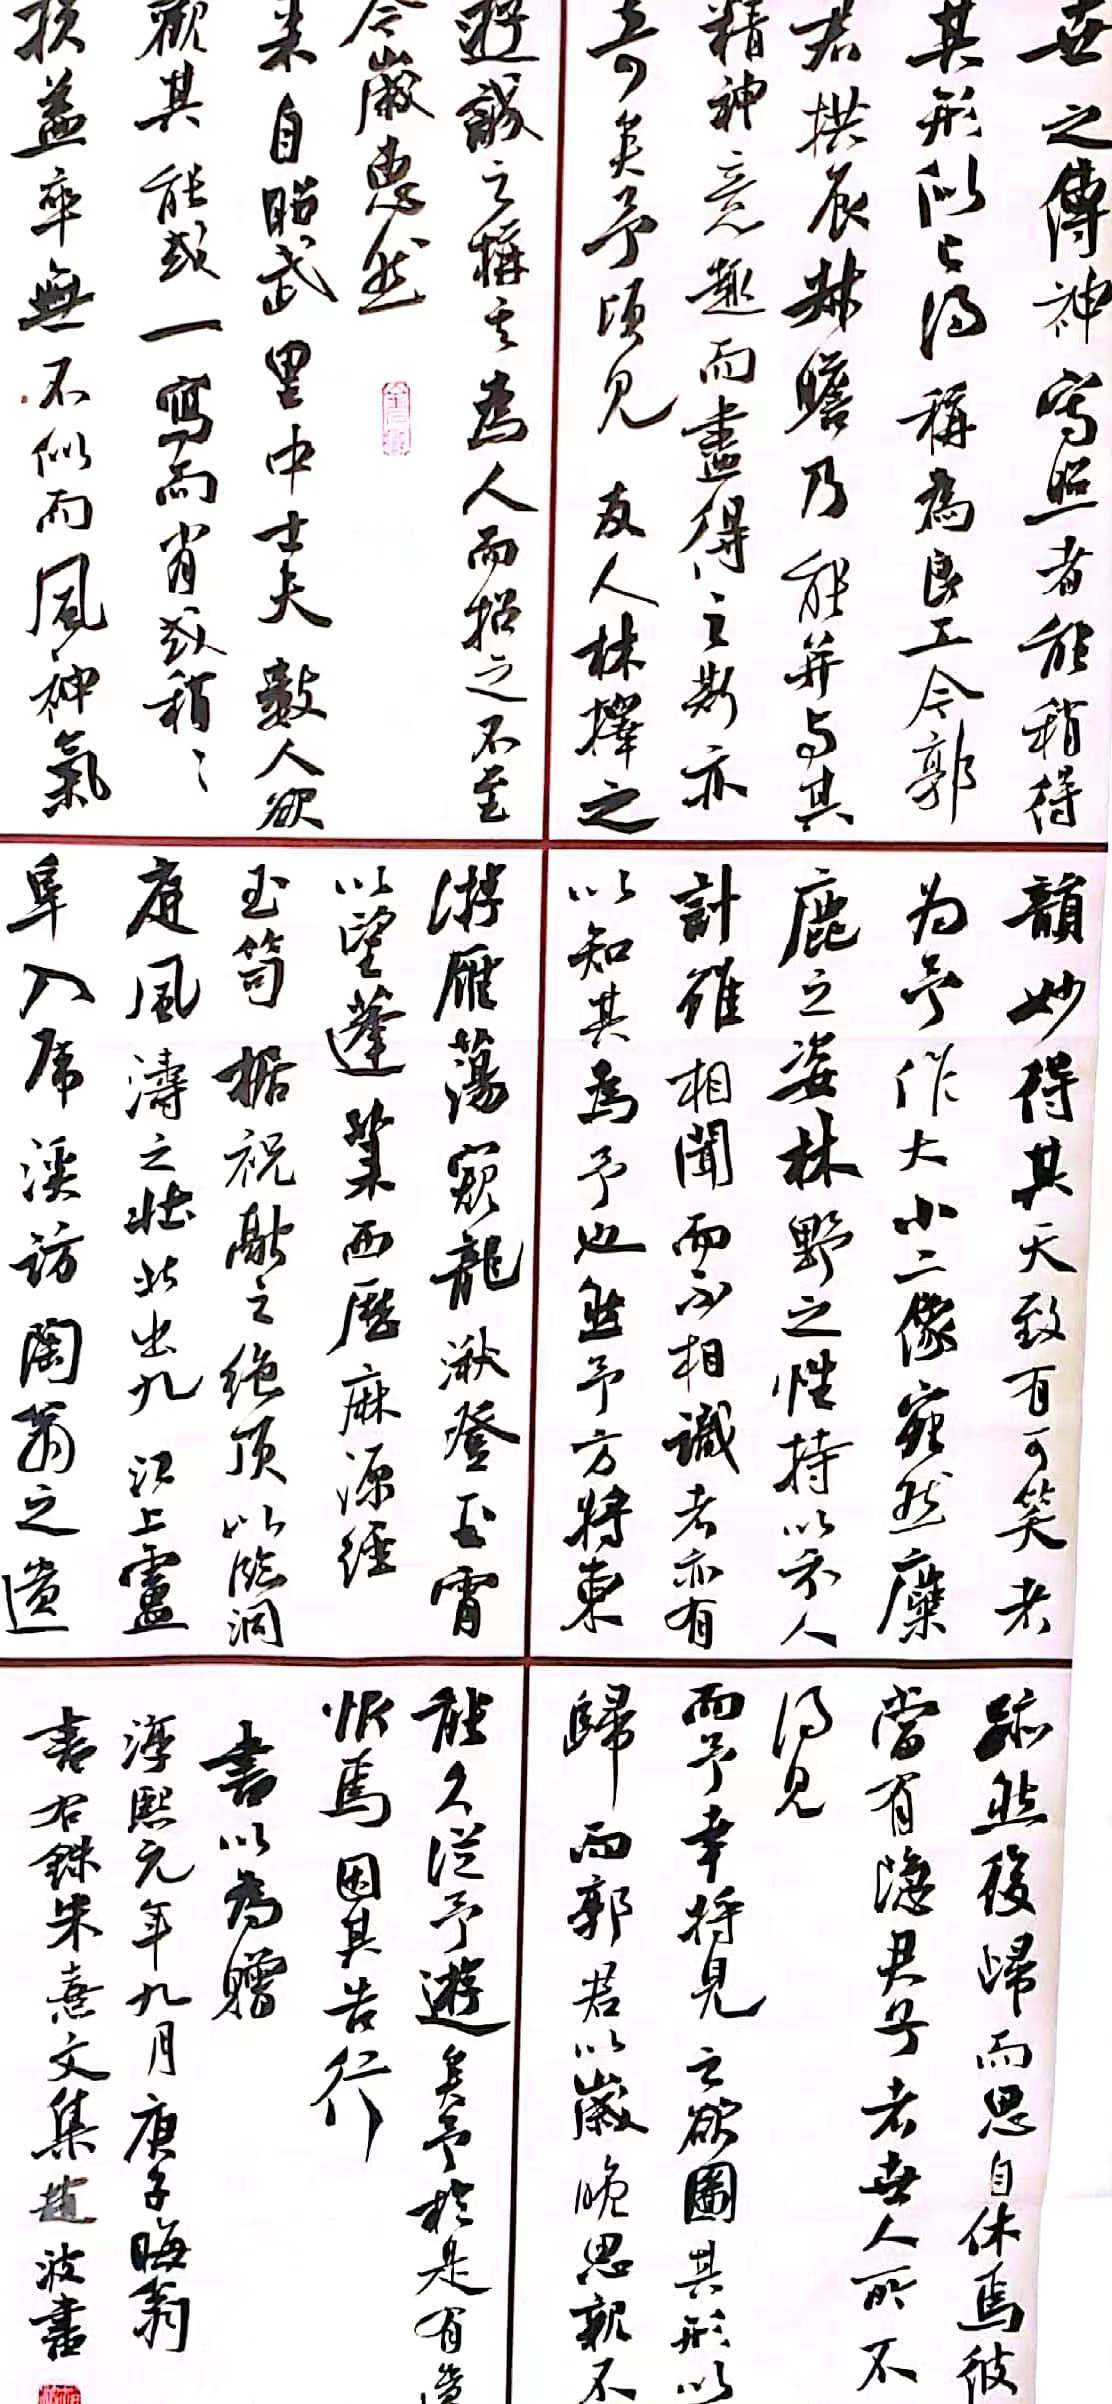 世之傳神寫照者能稍得
其形似已得稱為良工今郭
君拱辰叔瞻乃能并与其
精神意趣而盡得之斯亦
奇矣予頃見友人林擇之
遊誠之稱其為人而招之不至
今歲惠然
来自昭武里中士夫數人欲
觀其能或一寫而肖或稍〻
損益卒無不似而風神氣
韻妙得其天致有可笑者
为予作大小二像宛然麋
鹿之姿林野之性持以示人
計雖相聞而不相識者亦有
以知其為予也然予方將東
游雁蕩窺龍湫登玉霄
以望蓬萊西歷麻源經
玉笥據祝融之絶頂以臨洞
庭風濤之壯北出九江上廬
阜入虎溪訪陶翁之遺
跡然後歸而思自休焉彼
當有隱君子者世人所不
得見
而予幸将見之欲圖其形以
歸而郭君以歲晚思親不
能久從予遊矣予於是有遺
恨焉因其告行
書以為贈
淳熙元年九月庚子晦翁
書右錄朱熹文集趙波書